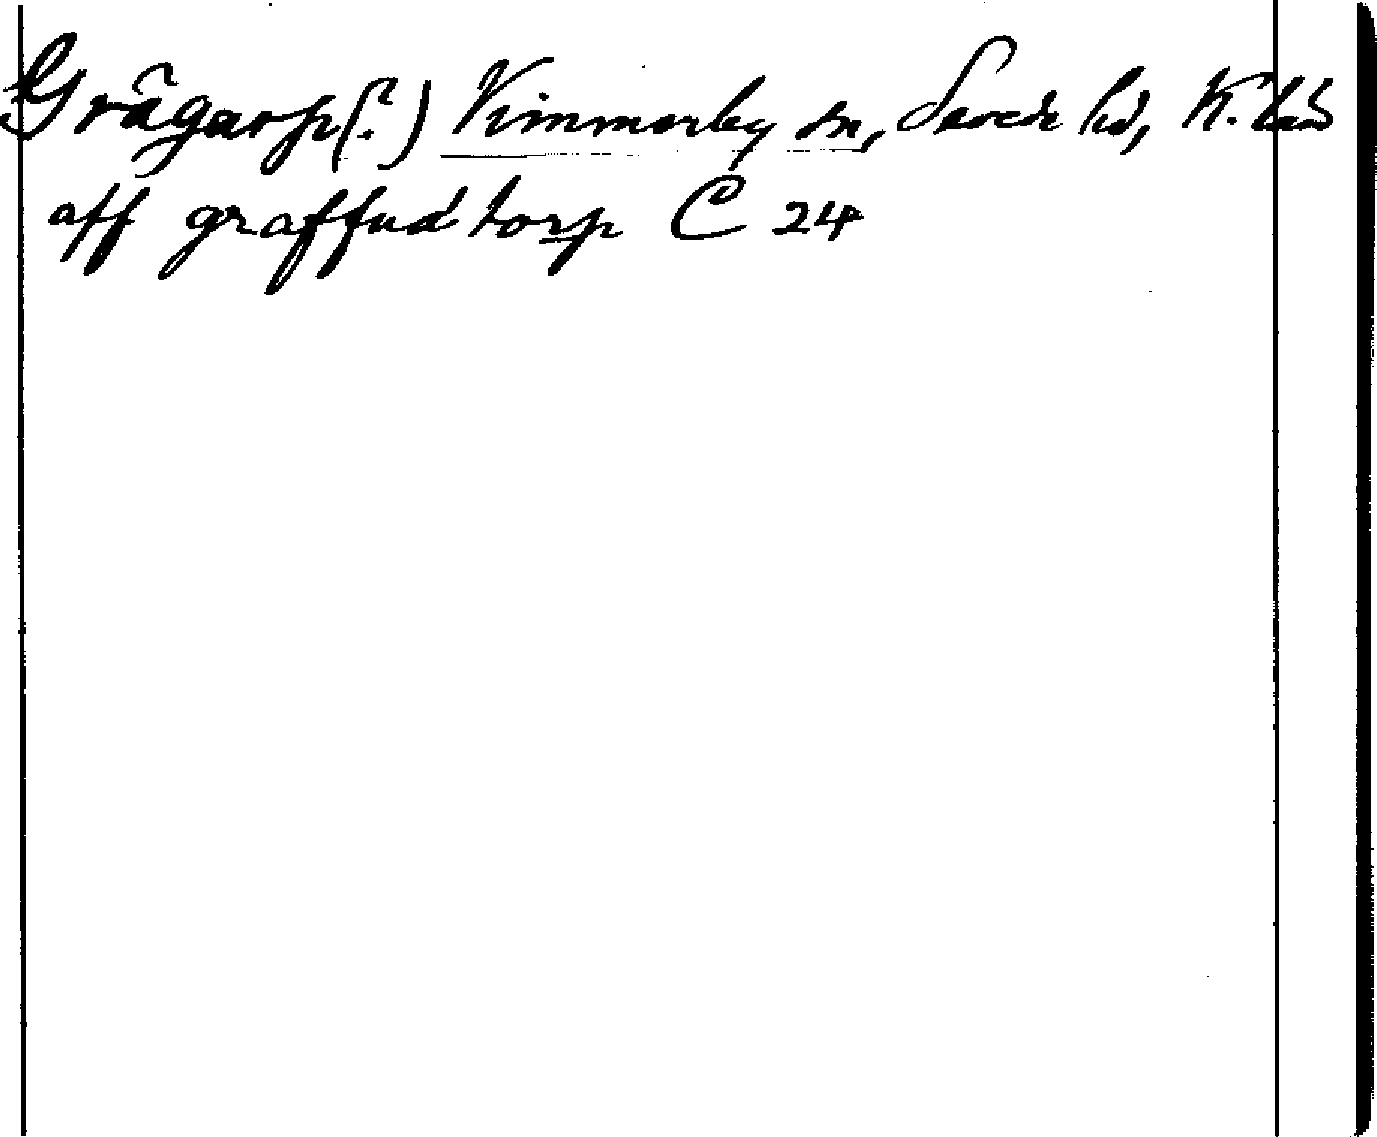 Grågarp(?) Vimmerby sn, Sevede hd, K. län
aff graffud torp C 24